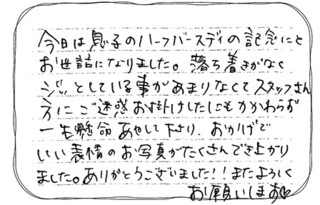 今日は息子のハーフバースディの記念にと
お世話になりました。落ち着きがなく
ジッとしている事があまりなくてスタッフさん
方にご迷惑お掛けしたにもかかわらず
一生懸命あやして下さり、おかげで
いい表情のお写真がたくさんでき上がり
ました。ありがとうございました！！またよろしく
お願いします♡